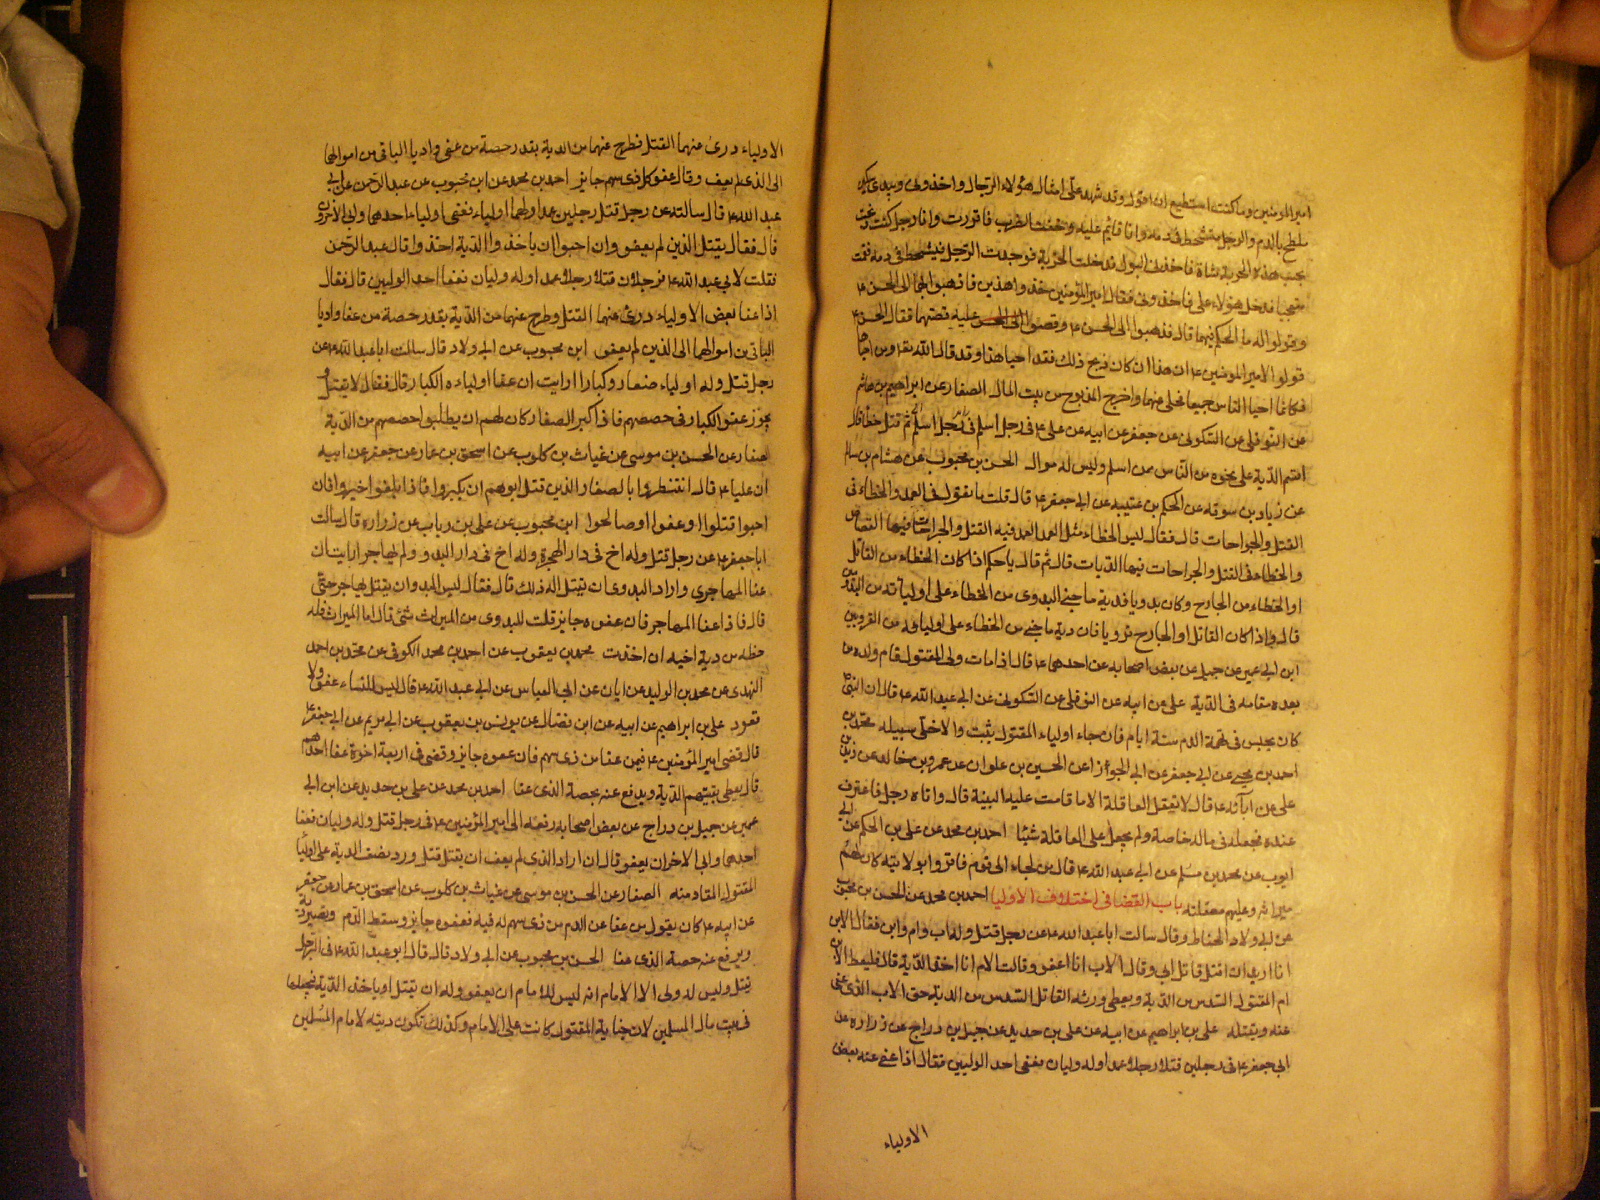 امير المؤمنين وما كنت استطيع ان اقول وقد شهد علىّ امثال هؤلاء الرجال واخذونى وبيدى سكين
ملطخ بالدم والرجل يتشحط فى دمه وانا قائم عليه وخفت الضرب فاقررت وانا رجل كنت ذبحت
بجنب هذه الخربة شاة فاخذنى البول فدخلت الخربة فوجدت الرجل يتشحط فى دمه فقمت
متعجبا فدخل هؤلاء على فاخذونى فقال امير المؤمنين خذوا هذين فاذهبوا بهما الى الحسن ع
وقولوا له ما الحكم فيهما قال فذهبوا الى الحسن ع وقصوا عليه قصتهما فقال الحسن ع
قولوا لامير المؤمنين ع ان هذا ان كان ذبح ذلك فقد احيا هذا وقد قال الله تع ومن احياها
فكانما احيا الناس جميعا فخلى عنهما واخرج دية المذبوح من بيت المال الصفار عن ابراهيم بن هاشم
عن النوفلى عن السكونى عن جعفر عن ابيه عن على ع فى رجل اسلم ثم قتل خطأ قال
اقسم الدية على نحوه من الناس ممن اسلم وليس له موال الحسن بن محبوب عن هشام بن سالم
عن زياد بن سوقه عن الحكم بن عتيبه عن ابى جعفر ع قال قلت ما تقول فى العمد والخطاء فى
القتل والجراحات قال فقال ليس الخطاء مثل العمد العمد فيه القتل والجراحات فيها القصاص
والخطاء فى القتل والجراحات فيها الديات قال ثم قال يا حكم اذا كان الخطاء من القاتل
او الخطاء من الجارح وكان بدويا فدية ما جنى البدوى من الخطاء على اوليائه من البدويين
قال واذا كان القاتل او الجارح قرويا فان دية ما جنى من الخطاء على اوليائه من القرويين
ابن ابى عمير عن جميل عن بعض اصحابه عن احدهما ع قال اذا مات ولى المقتول قام ولده من
بعده مقامه فى الدية على عن ابيه عن النوفلى عن السكونى عن ابى عبد الله ع قال ان النبى
كان يحبس فى تهمة الدم ستة ايام فان جاء اولياء المقتول بثبت والا خلى سبيله محمد بن
احمد بن يحيى عن ابى جعفر عن ابى الجوزا عن الحسين بن علوان عن عمرو بن خالد عن زيد بن
على عن ابائه ع قال لا تعقل العاقلة الا ما قامت عليه البينة قال واتاه رجل فاعترف
عنده فجعله فى ماله خاصة ولم يجعل على العاقلة شيئا احمد بن محمد عن على بن الحكم عن ابى
ايوب عن محمد بن مسلم عن ابى عبد الله ع قال من لجاء الى قوم فاقروا بولايته كان لهم
ميراثه وعليهم معقلته باب القضا فى اختلاف الاوليا احمد بن محمد عن الحسن بن محبوب
عن ابى ولاد الحناط وقال سالت ابا عبد الله ع عن رجل قتل وله اب وام وابن فقال الابن
انا اريد ان اقتل قاتل ابى وقال الاب انا اعفو وقالت الام انا اخذ الدية قال فليعط الابن
ام المقتول السدس من الدية ويعطى ورثه القاتل السدس من الدية حق الاب الذى عفى
عنه ويقتله على بن ابراهيم عن ابيه عن على بن حديد عن جميل بن دراج عن زراره عن
ابى جعفر ع فى رجلين قتلا رجلا عمدا وله وليان فعفى احد الوليين فقال اذا عفى عنه بعض
الاولياء
الاولياء درئ عنهما القتل فطرح عنهما من الدية بقدر حصة من عفى واديا الباقى من اموالهما
الى الذى لم يعف وقال عفو كل ذى سهم جايز احمد بن محمد عن ابن محبوب عن عبد الرحمن عن ابى
عبد الله ع قال سالته عن رجل قتل رجلين عمدا ولهما اولياء فعفى اولياء احدهما وابى الاخرون
قال فقال يقتل الذين لم يعفو وان احبوا ان ياخذوا الدية اخذوا قال عبد الرحمن
فقلت لابى عبد الله ع فرجلان قتلا رجلا عمدا وله وليان فعفا احد الوليين قال فقال
اذا عفا بعض الاولياء درئ عنهما القتل وطرح عنهما من الدية بقدر حصة من عفا واديا
الباقى من اموالهما الى الذين لم يعفو ابن محبوب عن ابى ولاد قال سالت ابا عبد الله ع عن
رجل قتل وله اولياء صغار وكبار ارايت ان عفا اولياءه الكبار قال فقال لا يقتل و
يجوز عفو الكبار فى حصصهم فاذا كبر الصغار كان لهم ان يطلبوا حصصهم من الدية
الصفار عن الحسن بن موسى عن غياث بن كلوب عن اسحق بن عمار عن جعفر عن ابيه
ان عليا ع قال انتظروا بالصغار الذين قتل ابوهم ان يكبروا فاذا بلغوا خيروا فان
احبوا قتلوا او عفوا او صالحوا ابن محبوب عن على بن رياب عن زراره قال سالت
ابا جعفر ع عن رجل قتل وله اخ فى دار الهجرة وله اخ فى دار البدو ولم يهاجر ارايت ان
عفا المهاجرى واراد البدوى ان يقتل اله ذلك قال فقال ليس للبدوى ان يقتل مهاجر حتى
قال فاذا عفا المهاجر فان عفوه جايز قلت للبدوى من الميراث شئ قال اما الميراث فله
حظه من دية اخيه ان اخذت محمد بن يعقوب عن احمد بن محمد الكوفى عن محمد بن احمد
النهدى عن محمد بن الوليد عن ابان عن ابى العباس عن ابى عبد الله ع قال ليس للنساء عفو ولا
قود على بن ابراهيم عن ابيه عن ابن فضال عن يونس بن يعقوب عن ابى مريم عن ابى جعفر ع
قال قضى امير المؤمنين ع فيمن عفا من ذى سهم فان عفوه جايز وقضى فى اربعة اخوة عفا احدهم
قال يعطى بقيتهم الدية ويدفع عنه بحصة الذى عفا احمد بن محمد عن على بن حديد عن ابن ابى
عمير عن جميل بن دراج عن بعض اصحابه رفعه الى امير المؤمنين ع فى رجل قتل وله وليان فعفا
احدهما وابى الاخر ان يعفو قال ان اراد الذى لم يعف ان يقتل قتل ورد نصف الدية على اوليا
المقتول المقاد منه الصفار عن الحسن بن موسى عن غياث بن كلوب عن اسحق بن عمار عن جعفر
عن ابيه ع كان يقول من عفا عن الدم من ذى سهم له فيه فعفوه جايز وسقط الدم وتصير دية
ويرفع عنه حصة الذى عفا الحسن بن محبوب عن ابى ولاد قال قال ابو عبد الله ع فى الرجل
يقتل وليس له ولى الا الامام انه ليس للامام ان يعفو وله ان يقتل او ياخذ الدية فيجعلها
فى بيت مال المسلمين لان جناية المقتول كانت على الامام وكذلك تكون ديته لامام المسلمين